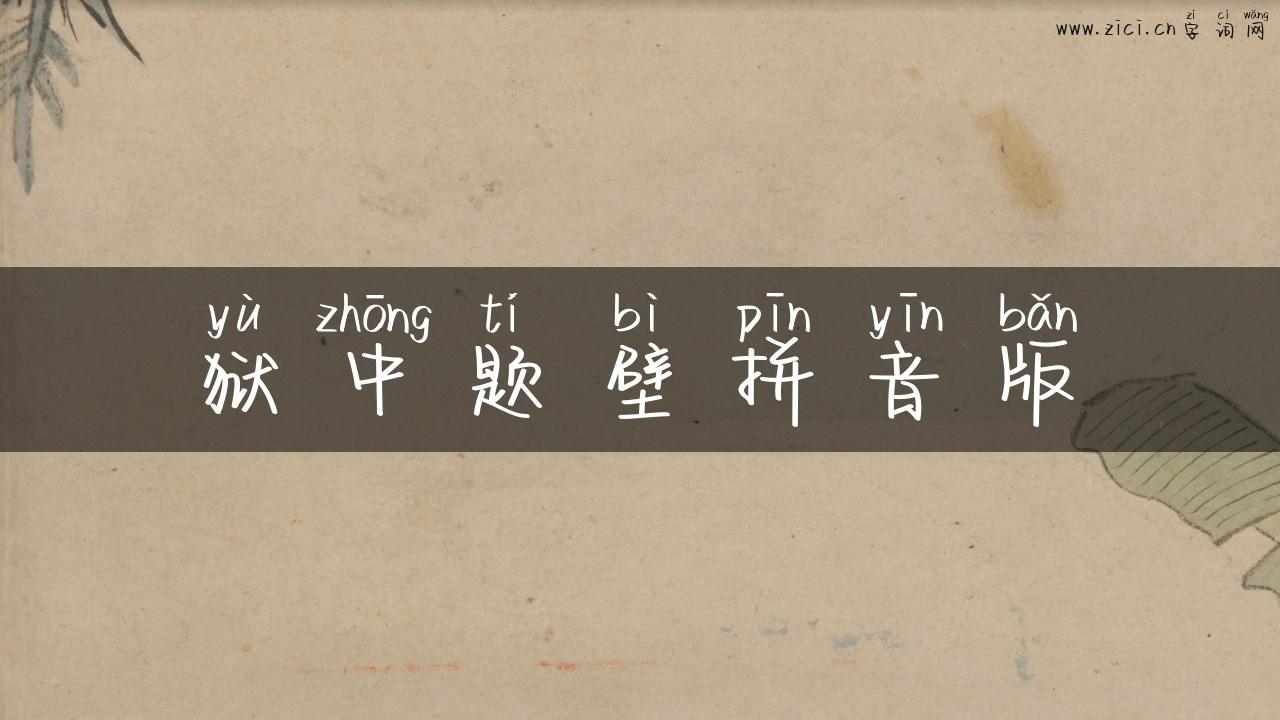 zì cí wǎng
www.zici.cn 字词网
yù zhōng tí bì pīn yīn bǎn
狱中题壁拼音版